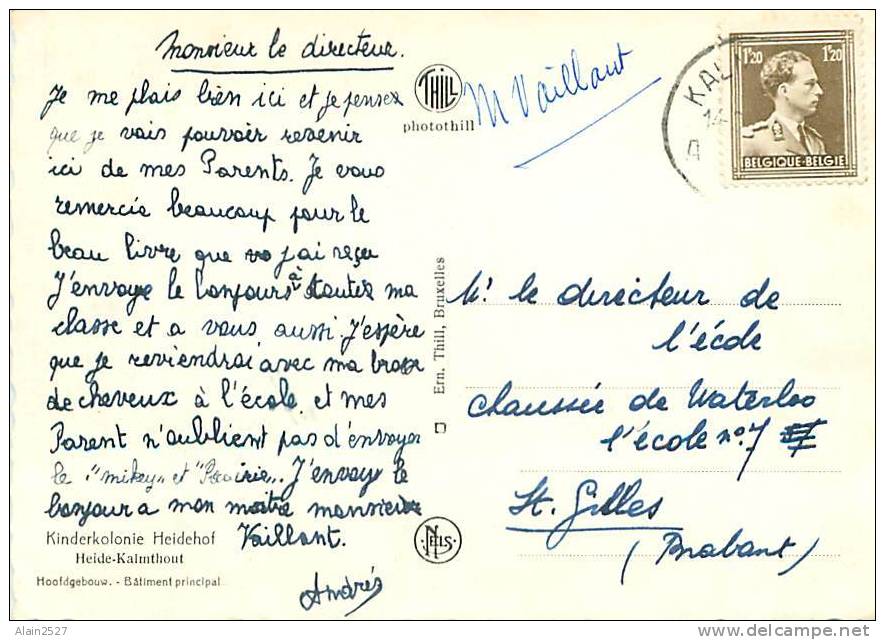 Monsieur le directeur.
Je me plais bien ici et je pensez
que je vais pouvoir revenir
ici de mes Parents. Je vous
remercie beaucoup pour le
beau livre que vo j'ai reçu
J'envoye le bonjours à toutes ma
classe et a vous aussi. J'espère
que je reviendrai avec ma brosse
de cheveux à l'école, et mes
Parent n'oublient pas d'envoyer
le "mikey" et "Prairie". J'envoye le
bonjour a mon maitre monsieur
Vaillant.
Andrés
Kinderkolonie Heidehof
Heide-Kalmthout
Hoofdgebouw. - Bâtiment principal
THILL
photothill
Ern. Thill, Bruxelles
NELS
M Vaillant
KAL
14
1F20 1F20
BELGIQUE-BELGIE
M. le directeur de
l'école
chaussée de Waterloo
l'école n° 7
St. Gilles
(Brabant)
Alain2527
delcampe.net